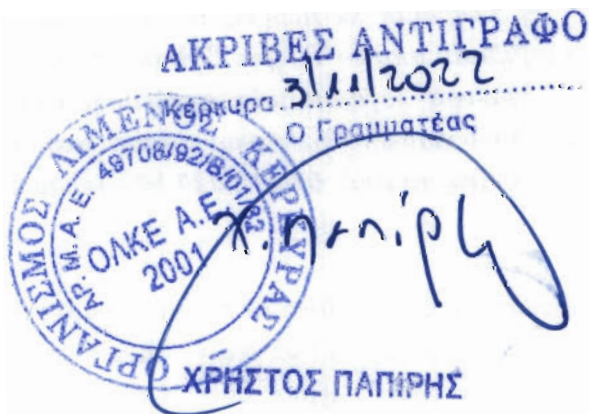 ΑΚΡΙΒΕΣ ΑΝΤΙΓΡΑΦΟ
Κέρκυρα 3/11/2022
Ο Γραμματέας
ΟΡΓΑΝΙΣΜΟΣ ΛΙΜΕΝΟΣ ΚΕΡΚΥΡΑΣ
ΑΡ. Μ. Α. Ε. 49708/92/Β/01/32
ΟΛΚΕ Α.Ε.
2001
Χ. Παπίρης
ΧΡΗΣΤΟΣ ΠΑΠΙΡΗΣ